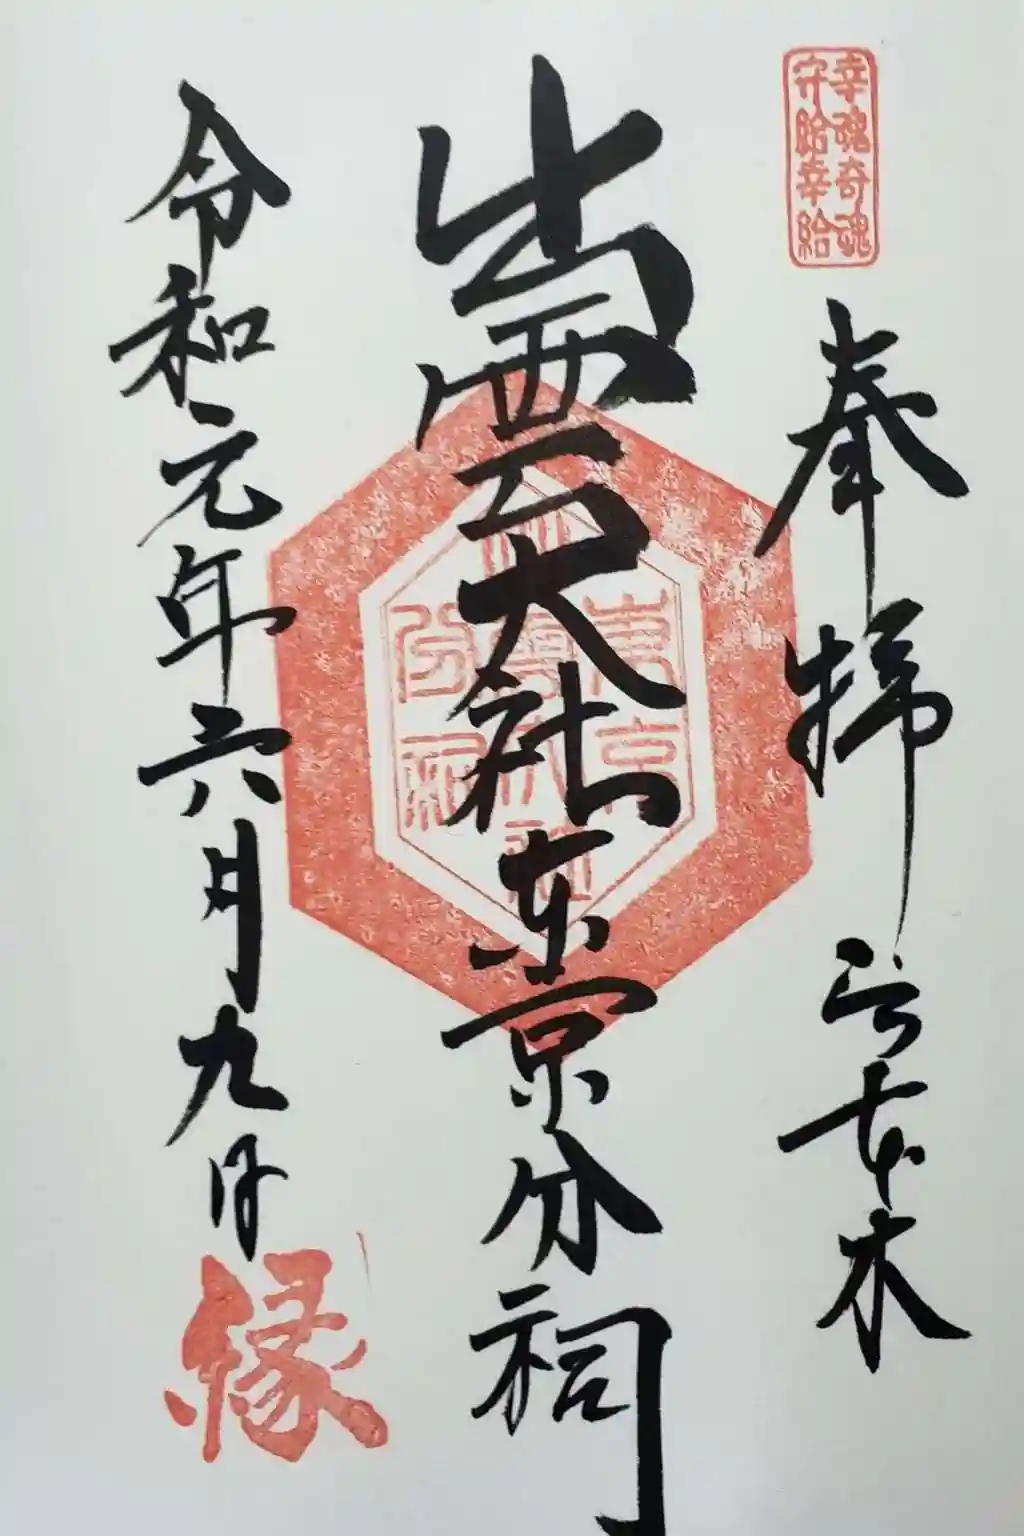 幸魂奇魂
守給幸給
奉拝 六本木
出雲大社東京分祠
令和元年六月九日
縁
東京
出雲大社
分祠